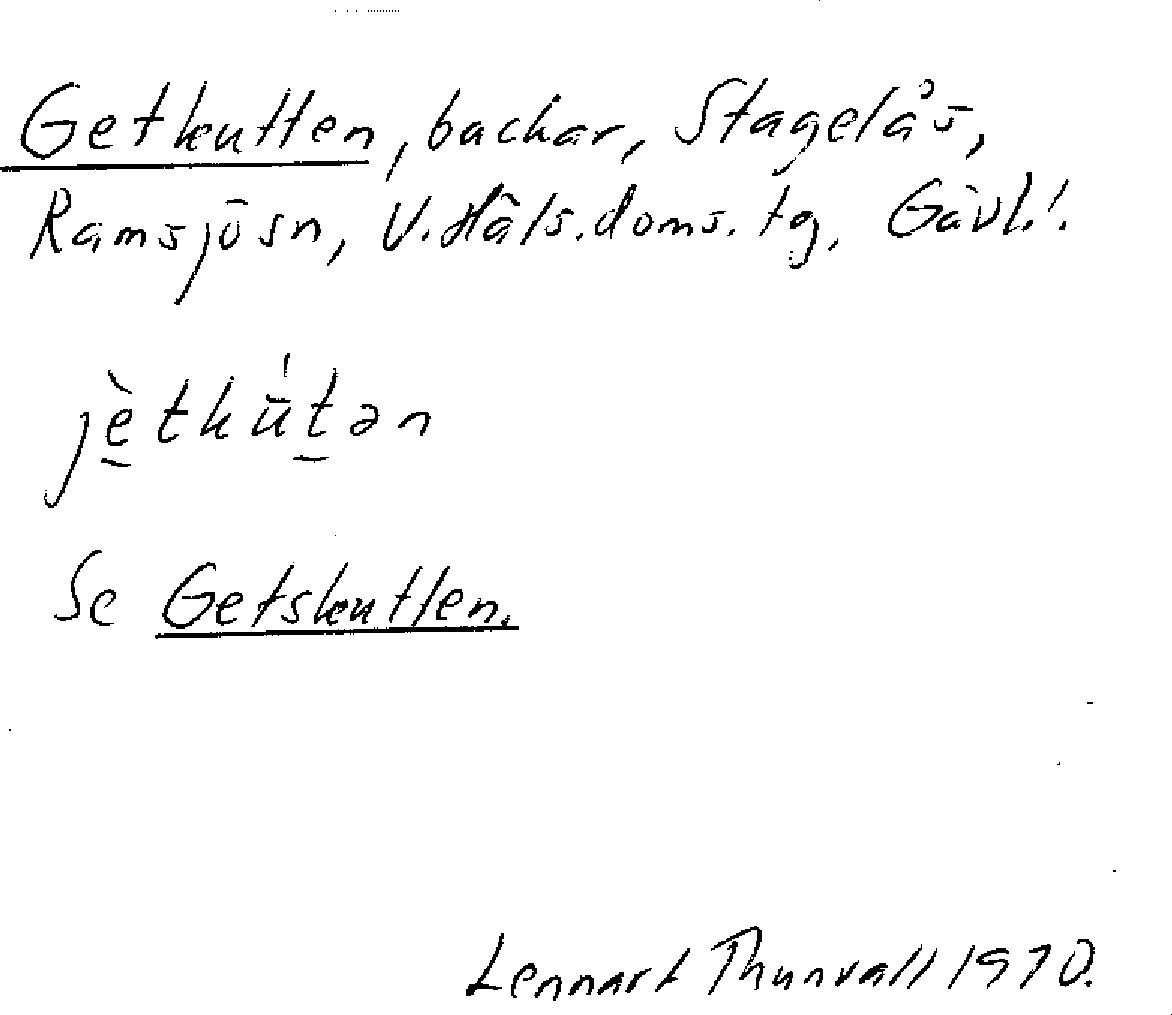 Getkutten, backar, Stagelås,
Ramsjösn, V. Häls. doms. tg, Gävl. l.
jètkǘtən
Se Getskutten.
Lennart Thunvall 1970.